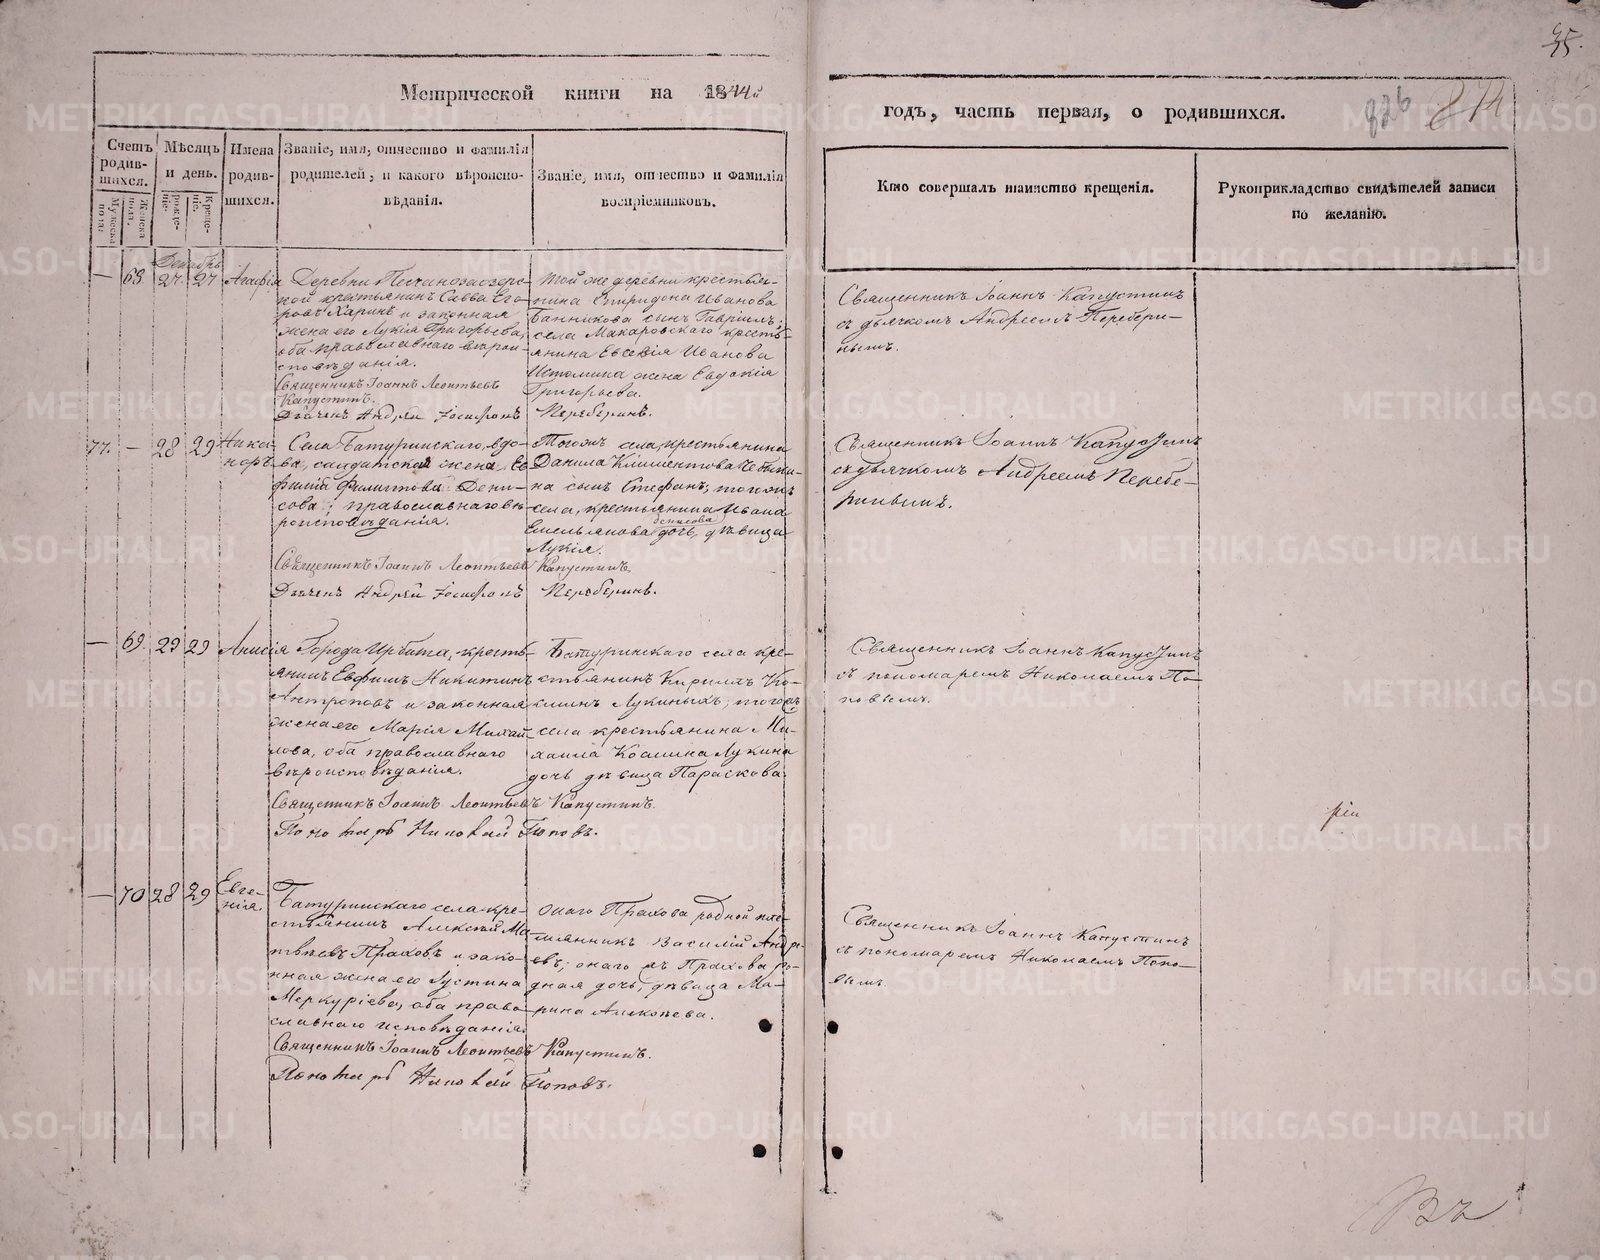 35.
Метрической книги на 1844й
годъ, часть первая, о родившихся.
826 874
Счетъ родив-шихся.
Мужеска пола.
Женска пола.
Мѣсяцъ и день.
рожде-ніе.
Креще-ніе.
Имена родив-шихся.
Званіе, имя, отчество и фамилія
родителей, и какого вѣроиспо-
вѣданія.
Званіе, имя, отчество и фамилія
воспріемниковъ.
Кто совершалъ таинство крещенія.
Рукоприкладство свидѣтелей записи
по желанію.
Декабрь
— 68 27 27 Агафія
Деревни Песчанозаозеро-
ской крестьянинъ Савва Его-
ровъ Харинъ и законная
жена его Лукія Григорьева,
оба православнаго вѣрои-
сповѣданія.
Священникъ Іоаннъ Леонтьевъ
Капустинъ.
Дьячекъ Андрей Іосифовъ
Той же деревни крестья-
нина Спиридона Иванова
Банникова сынъ Гавріилъ,
села Макаровскаго кресть-
янина Евсевія Иванова
Истомина жена Евдокія
Григорьева.
Переберинъ.
Священникъ Іоаннъ Капустинъ
съ дьячкомъ Андреемъ Перебери-
нымъ.
77. — 28 29 Ника-
норъ
Села Батуринскаго, вдо-
ва, солдатская жена Ев
фимія Филиппова Дени-
сова, православнаго вѣ-
роисповѣданія.
Священникъ Іоаннъ Леонтьевъ
Дьячекъ Андрей Іосифовъ
Тогожъ села, крестьянина
Данила Климентова
на сынъ Стефанъ; тогожъ
села, крестьянина Ивана
Емельянова Денисова дочь, дѣвица
Лукія.
Капустинъ.
Переберинъ.
Священникъ Іоаннъ Капустинъ
съ дьячкомъ Андреемъ Перебе-
ринымъ.
— 69. 29 29 Анисія
Города Ирбита, кресть-
янинъ Евфимъ Никитинъ
Антроповъ и законная
жена его Марія Михай-
лова, оба православнаго
вѣроисповѣданія.
Священникъ Іоаннъ Леонтьевъ
Пономарь Николай
Батуринскаго села кре-
стьянинъ Кириллъ Ко-
сминъ Лукиныхъ; тогожъ
села крестьянина Ми-
хаила Космина Лукина
дочь дѣвица Параскева.
Капустинъ.
Поповъ.
Священникъ Іоаннъ Капустинъ
съ пономаремъ Николаемъ По-
повымъ.
ріи
— 70 28 29 Евге-
нія.
Батуринскаго села кре-
стьянинъ Алексѣй Ма-
твѣевъ Праховъ и зако-
нная жена его Іустина
Меркуріева, оба право-
славнаго исповѣданія.
Священникъ Іоаннъ Леонтьевъ
Пономарь Николай
Онаго Прахова родной пле-
мянникъ Василій Андре-
евъ; онаго жъ Прахова ро-
дная дочь, дѣвица Ма-
рина Алексѣева.
Капустинъ.
Поповъ.
Священникъ Іоаннъ Капустинъ
съ пономаремъ Николаемъ Попо-
вымъ.
Въ
METRIKI.GASO-URAL.RU